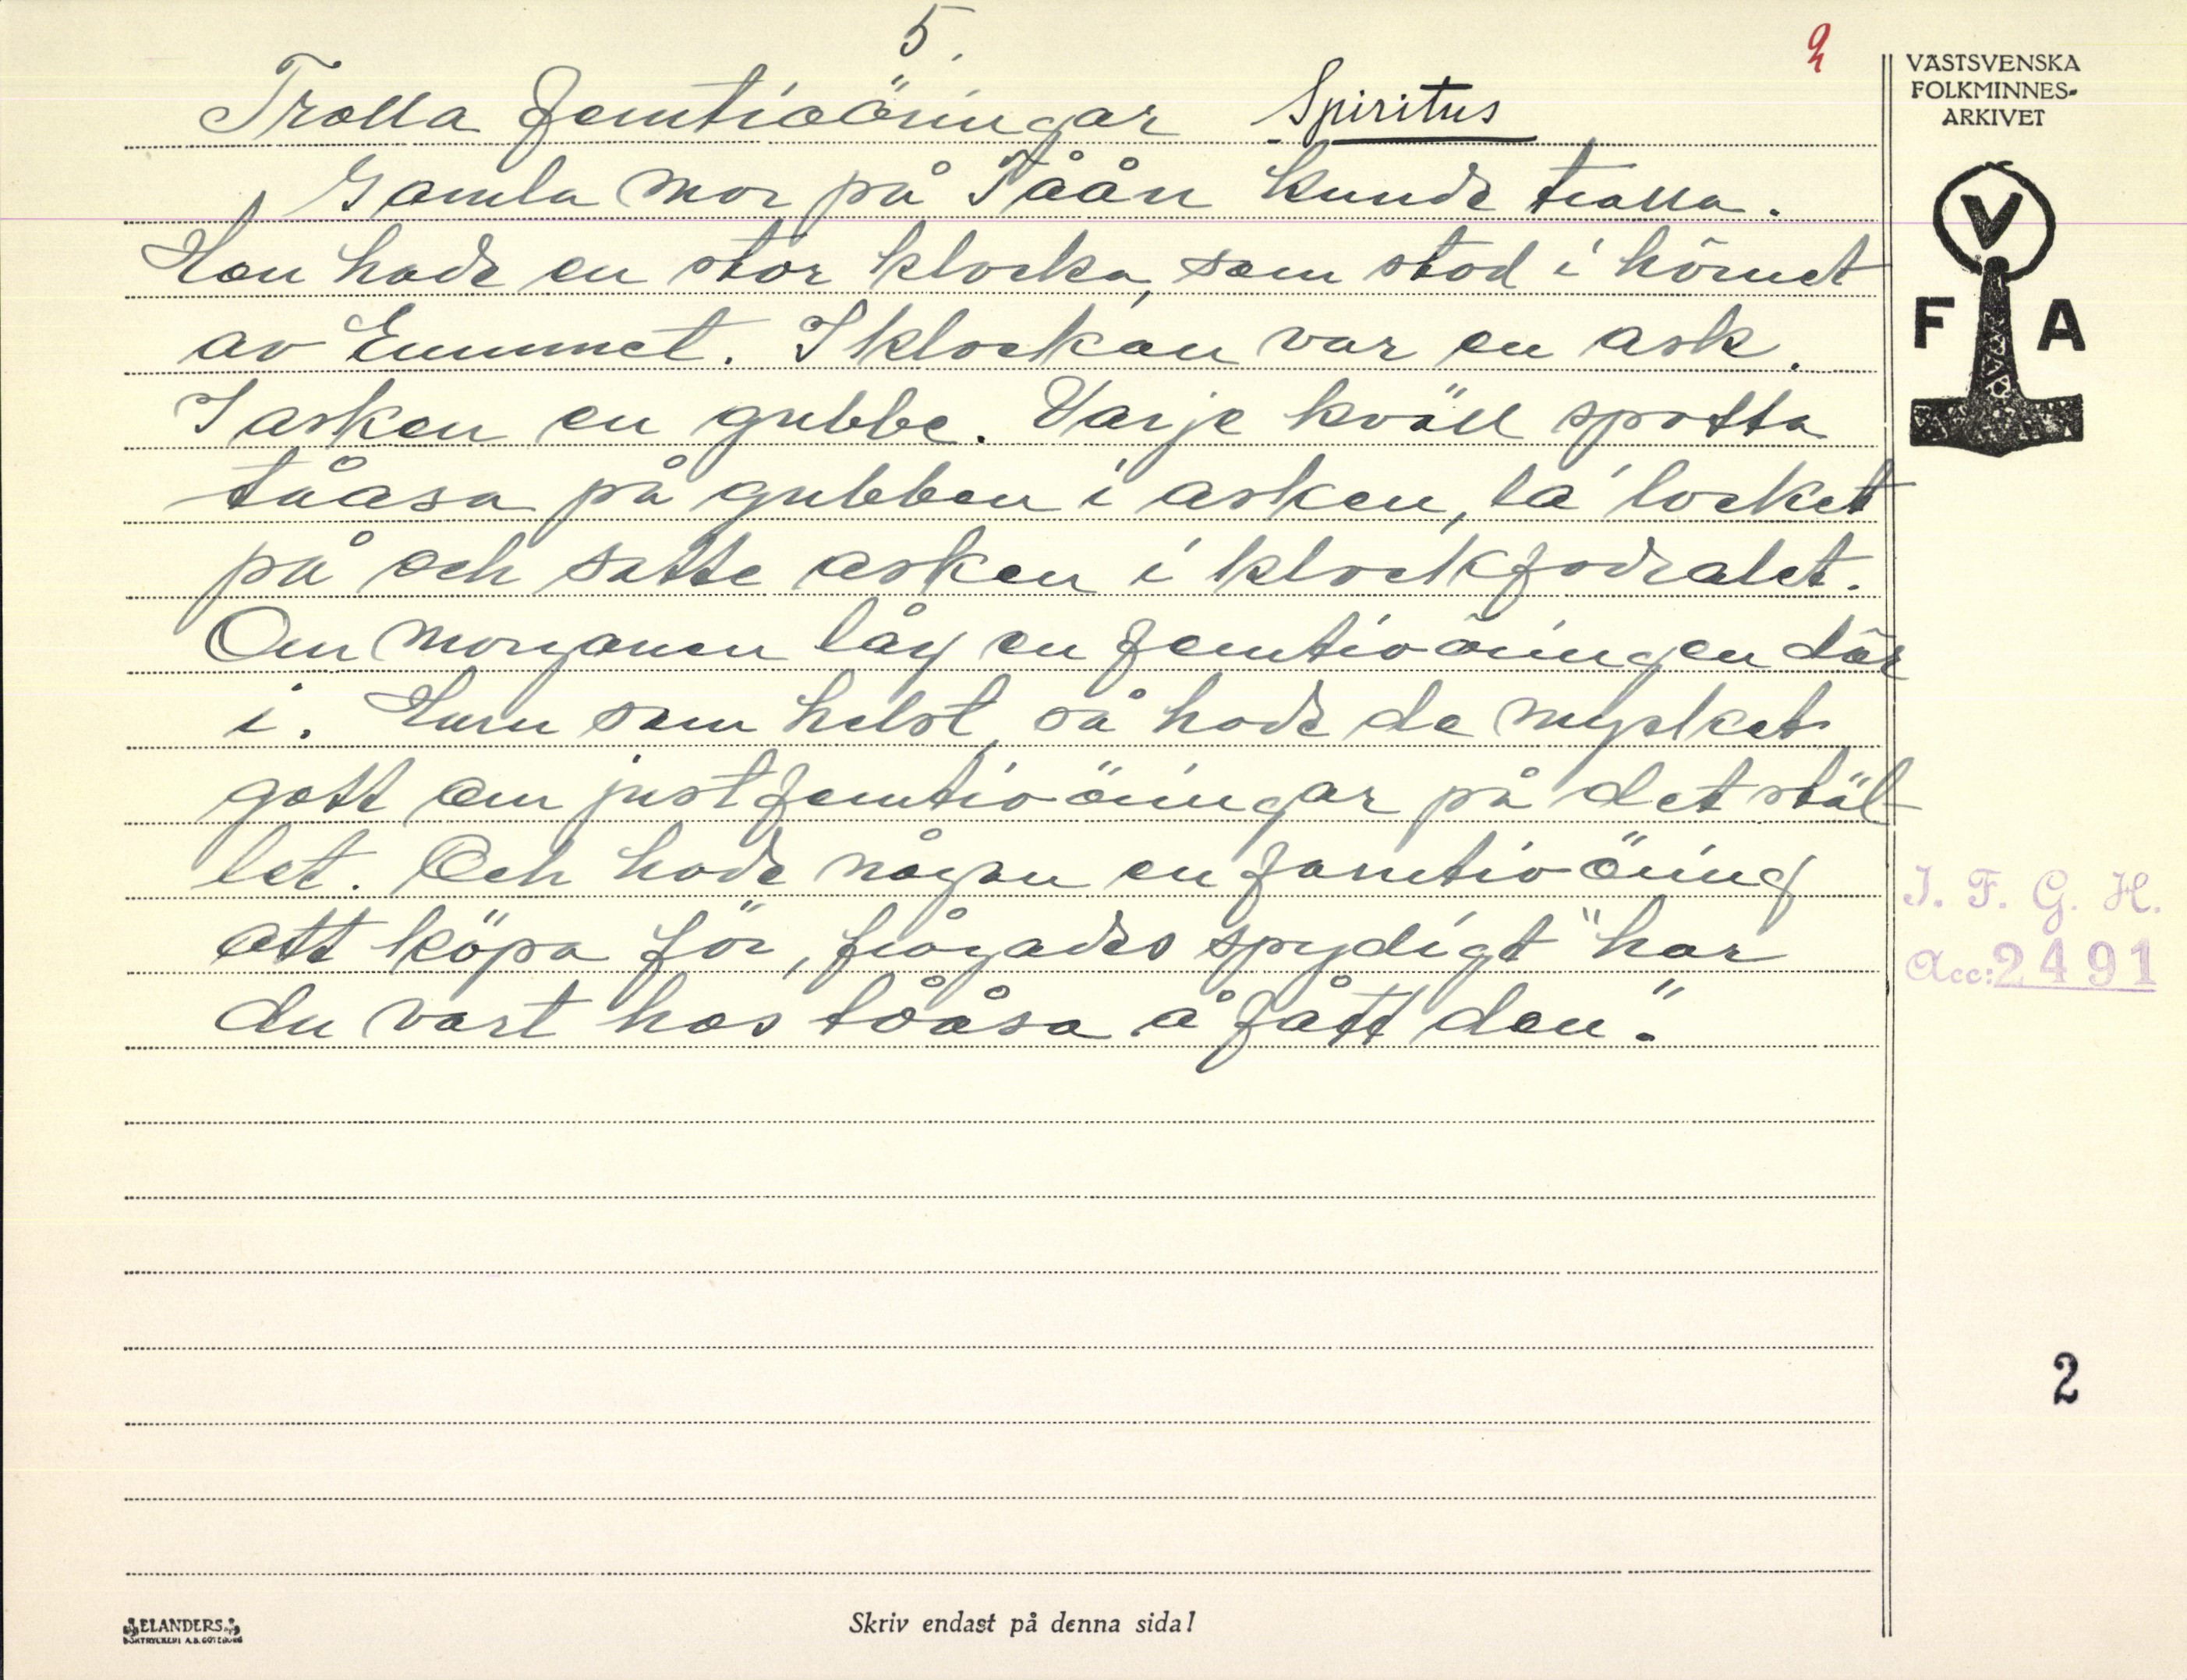 5.
2
Trolla femtioöringar Spiritus
Gamla mor på Tåån kunde trolla.
Hon hade en stor klocka, som stod i hörnet
av Emmmet. I klockan var en ask.
I asken en gubbe. Varje kväll spotta
tåasa på gubben i asken, la' locket
på och satte asken i klockfodralet.
Om morgonen låg en femtioöringen där
i. Huru som helst, så hade de mycket
gott om just femtioöringar på det stäl-
let. Och hade någon en femtioöring
att köpa för, frågades spydigt "har
du vart hos tååsa å fått den".
VÄSTSVENSKA
FOLKMINNES-
ARKIVET
V
F A
I. F. G. H.
Acc: 2491
2
ELANDERS
BOKTRYCKERI A.B. GÖTEBORG
Skriv endast på denna sida!